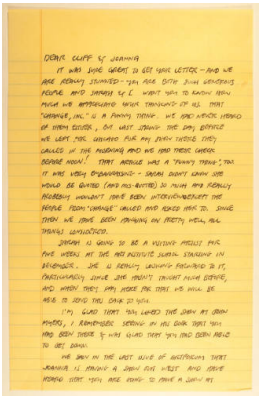 DEAR CLIFF & JOANNA
IT WAS SURE GREAT TO GET YOUR LETTER – AND WE
ARE REALLY STUNNED – YOU ARE BOTH SUCH GENEROUS
PEOPLE AND SARAH & I WANT YOU TO KNOW HOW
MUCH WE APPRECIATE YOUR THINKING OF US. THAT
"CHANGE, INC." IS A FUNNY THING. WE HAD NEVER HEARD
OF THEM EITHER, BUT LAST SPRING THE DAY BEFORE
WE LEFT FOR CHICAGO FOR MY SHOW THERE THEY
CALLED IN THE MORNING AND WE HAD THEIR CHECK
BEFORE NOON! THAT ARTICLE WAS A "FUNNY THING", TOO.
IT WAS VERY EMBARRASSING – SARAH DIDN'T KNOW SHE
WOULD BE QUOTED (AND MIS-QUOTED) SO MUCH AND REALLY
PROBABLY WOULDN'T HAVE BEEN INTERVIEWED EXCEPT THE
PEOPLE FROM "CHANGE" CALLED AND ASKED HER TO. SINCE
THEN WE HAVE BEEN HANGING ON PRETTY WELL, ALL
THINGS CONSIDERED.
SARAH IS GOING TO BE A VISITING ARTIST FOR
FIVE WEEKS AT THE ART INSTITUTE SCHOOL STARTING IN
DECEMBER. SHE IS REALLY LOOKING FORWARD TO IT,
PARTICULARLY SINCE SHE HASN'T TAUGHT MUCH BEFORE,
AND WHEN THEY PAY HER FOR THAT WE WILL BE
ABLE TO SEND THE BACK TO YOU.
I'M GLAD THAT YOU LIKED THE SHOW AT JOHN
MYERS, I REMEMBER SEEING IN HIS BOOK THAT YOU
HAD BEEN THERE & WAS GLAD THAT YOU HAD BEEN ABLE
TO GET DOWN.
WE SAW IN THE LAST ISSUE OF ARTFORUM THAT
JOANNA IS HAVING A SHOW OUT WEST AND HAVE
HEARD THAT YOU ARE GOING TO HAVE A SHOW AT